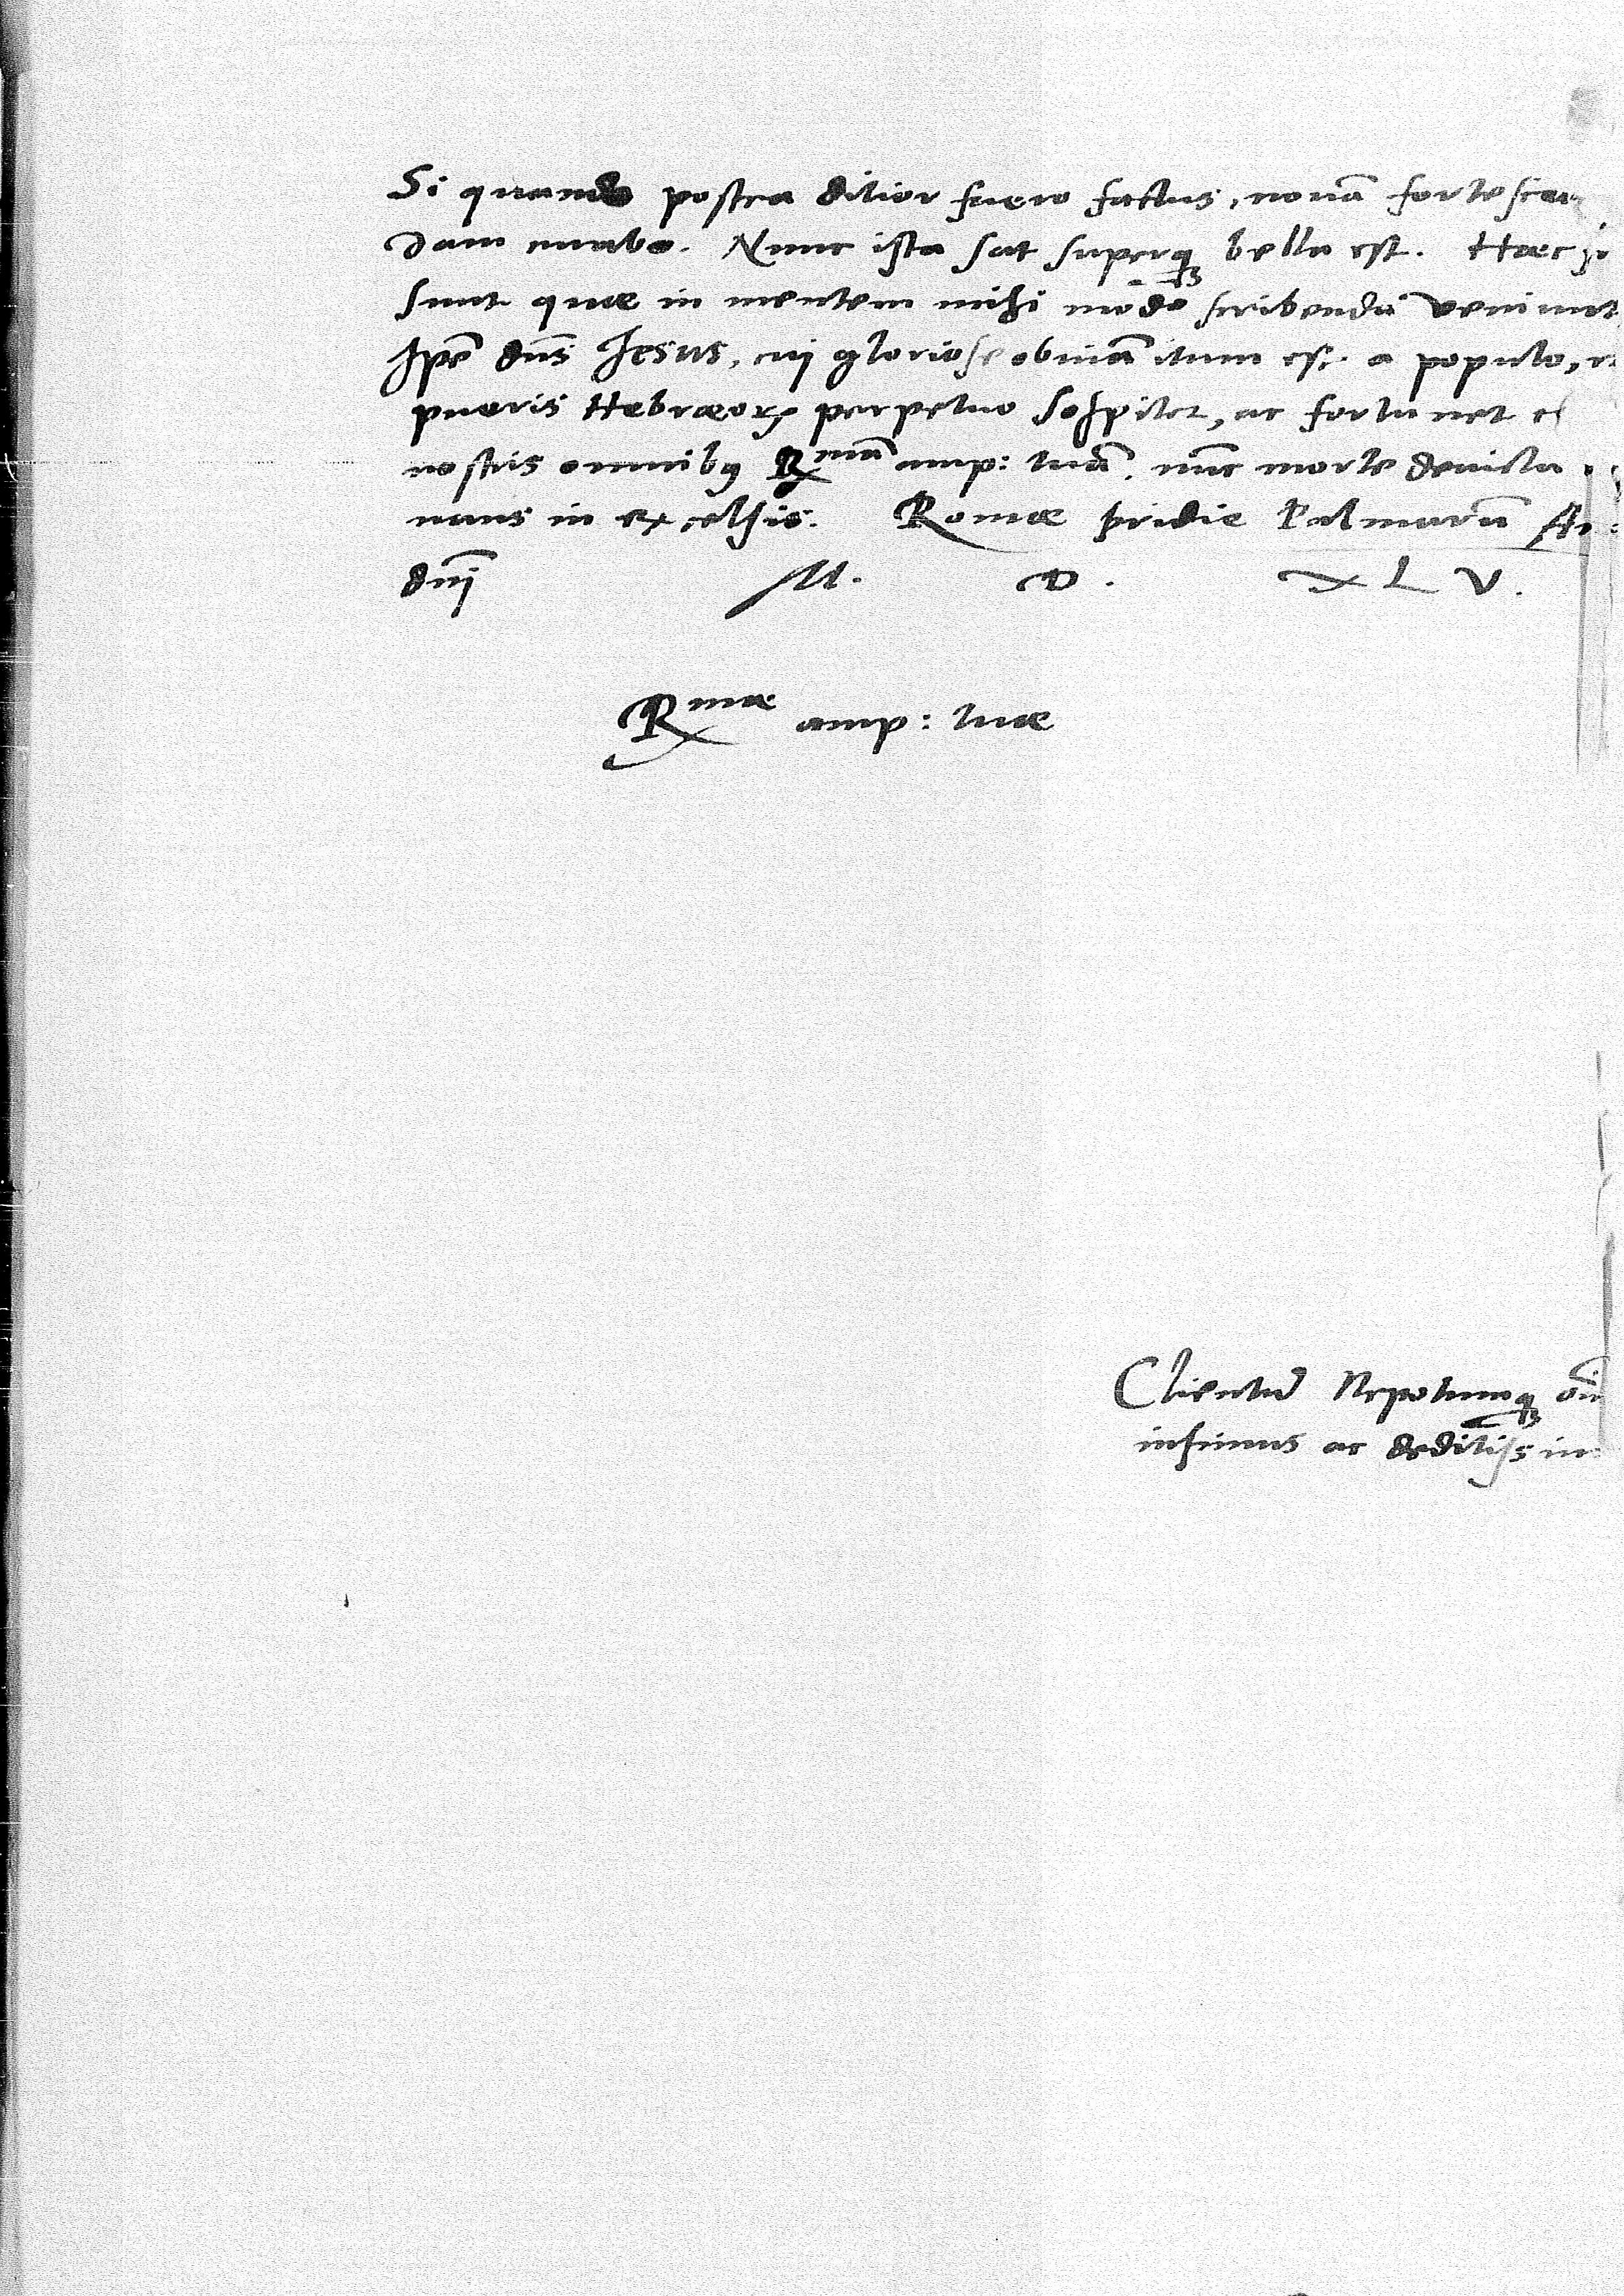 Si quando postea ditior fuero factus, nouā forte
dam curabo. Nunc ista sat superq₃ bella est. Haec
sunt quae in mentem mihi modo scribenda veniunt
Ipē dn̄s Jesus, cui gloriose obuiā itum est a populo,
pueris Hebraeoꝝ perpetuo sospitet, ac fortunet
nostris omnibꝰ Rmā amp: tuā. nūc morte deuicta
nans in excelsis. Romae pridie Palmarū
dnī M. D. XLV.
Rmae amp: tuae
Clientū Nepotumq₃
infimus ac deditiss